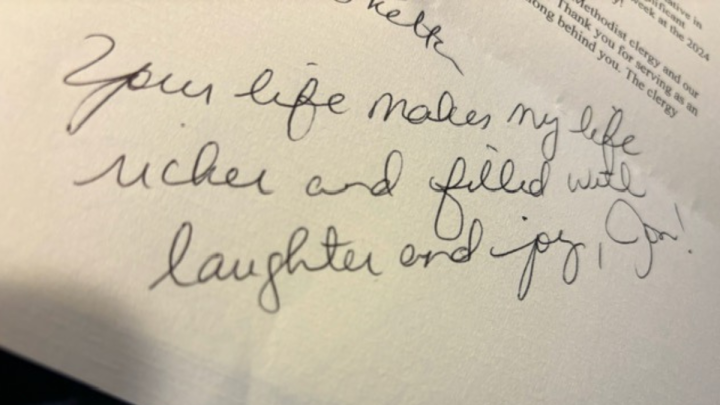 Your life makes my life
richer and filled with
laughter and joy, Jon!
ative in
nificant
y!
week at the 2024
Methodist clergy and our
Thank you for serving as an
ong behind you. The clergy